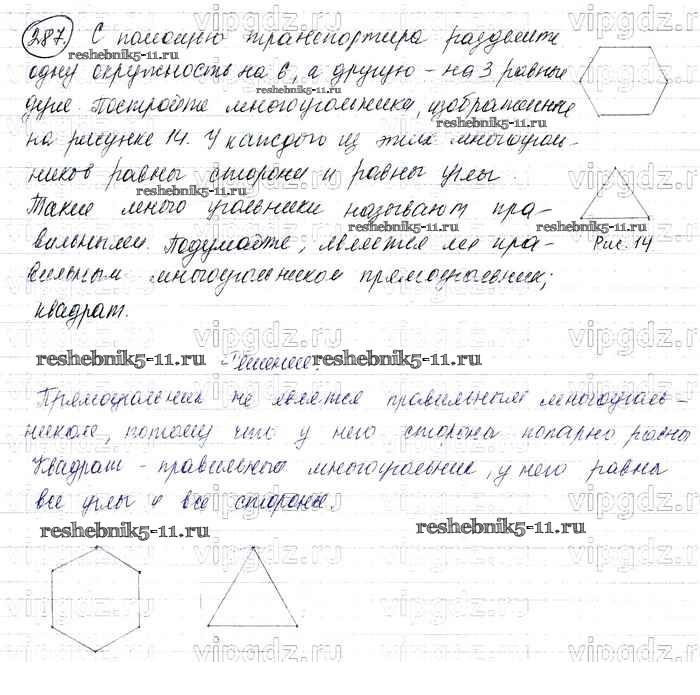 287. С помощью транспортира разделите
одну окружность на 6, а другую – на 3 равные
дуги. Постройте многоугольники, изображенные
на рисунке 14. У каждого из этих многоуголь-
ников равны стороны и равны углы.
Такие много угольники называют пра-
вильными. Подумайте, является ли пра-
вильным многоугольником прямоугольник;
квадрат.
Рис. 14
Решение:
Прямоугольник не является правильным многоуголь-
ником, потому что у него стороны попарно равны
Квадрат - правильный многоугольник, у него равны
все углы и все стороны.
reshebnik5-11.ru
vipgdz.ru